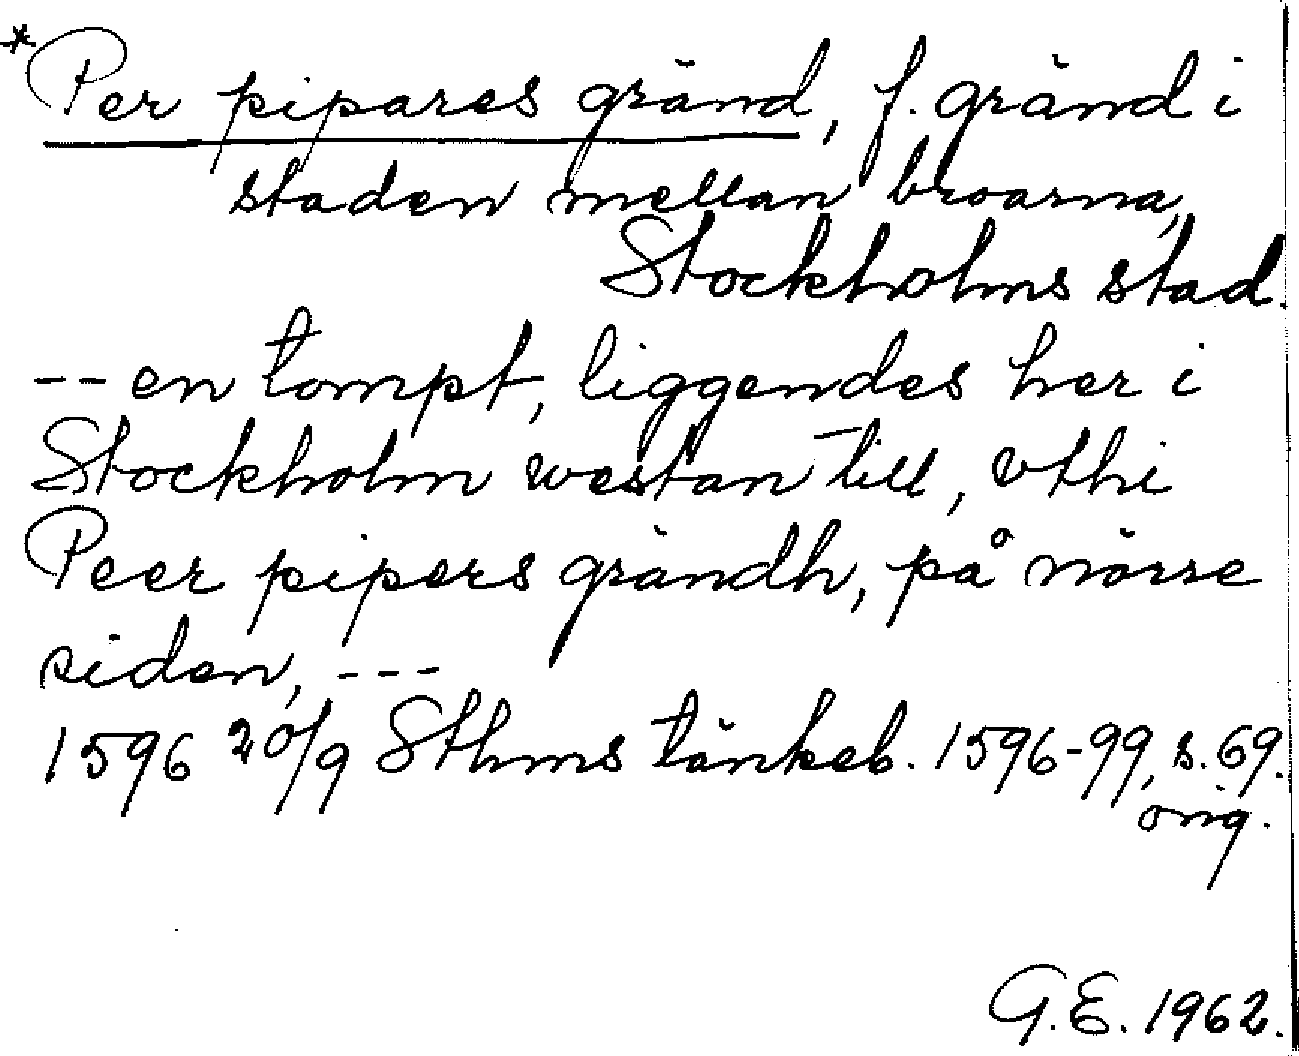 * Per pipares gränd, f. gränd i
staden mellan broarna,
Stockholms stad.
-- en tompt, liggendes her i
Stockholm westan till, vthi
Peer pipers grändh, på nörre
siden, ---
1596 20/9 Sthms tänkeb. 1596-99, s. 69.
orig.
G.E. 1962.